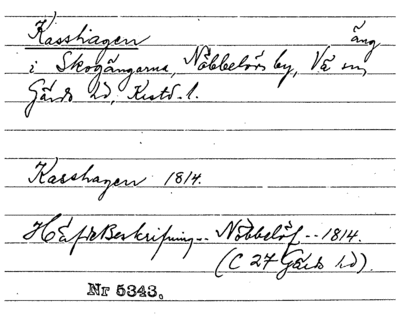 Kasshagen äng
i Skogängarna, Nöbbelövs by, Vä sn,
Gärds hd, Kristi. l.
Kasshagen 1814.
Häfde Beskrifning.. Nöbbelöf -- 1814.
(C 27 Gärds hd).
Nr 5343.